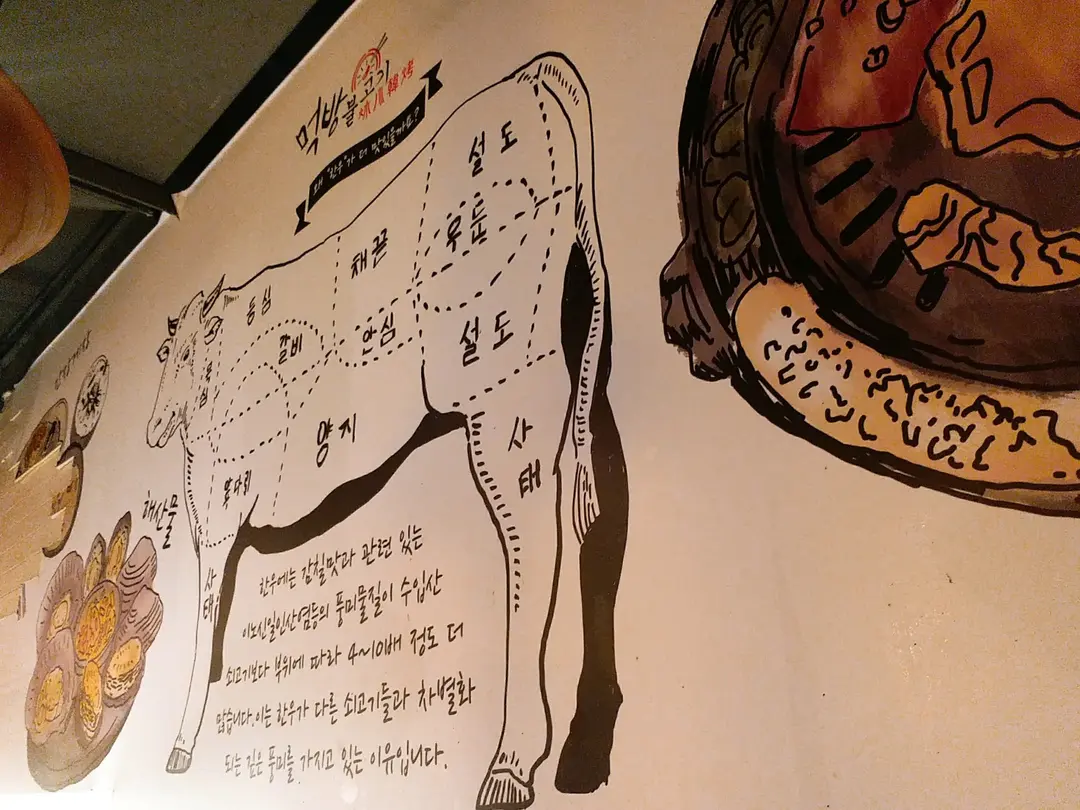 먹방
불고기
韓烤
왜 "한우"가 더 맛있을까요?
설도
우둔
채끝
등심
갈비
안심
설도
목심
양지
사태
앞다리
사태
해산물
한우에는 감칠맛과 관련 있는
이노신일인산염등의 풍미물질이 수입산
쇠고기보다 부위에 따라 4~10배 정도 더
많습니다.이는 한우가 다른 쇠고기들과 차별화
되는 깊은 풍미를 가지고 있는 이유입니다.